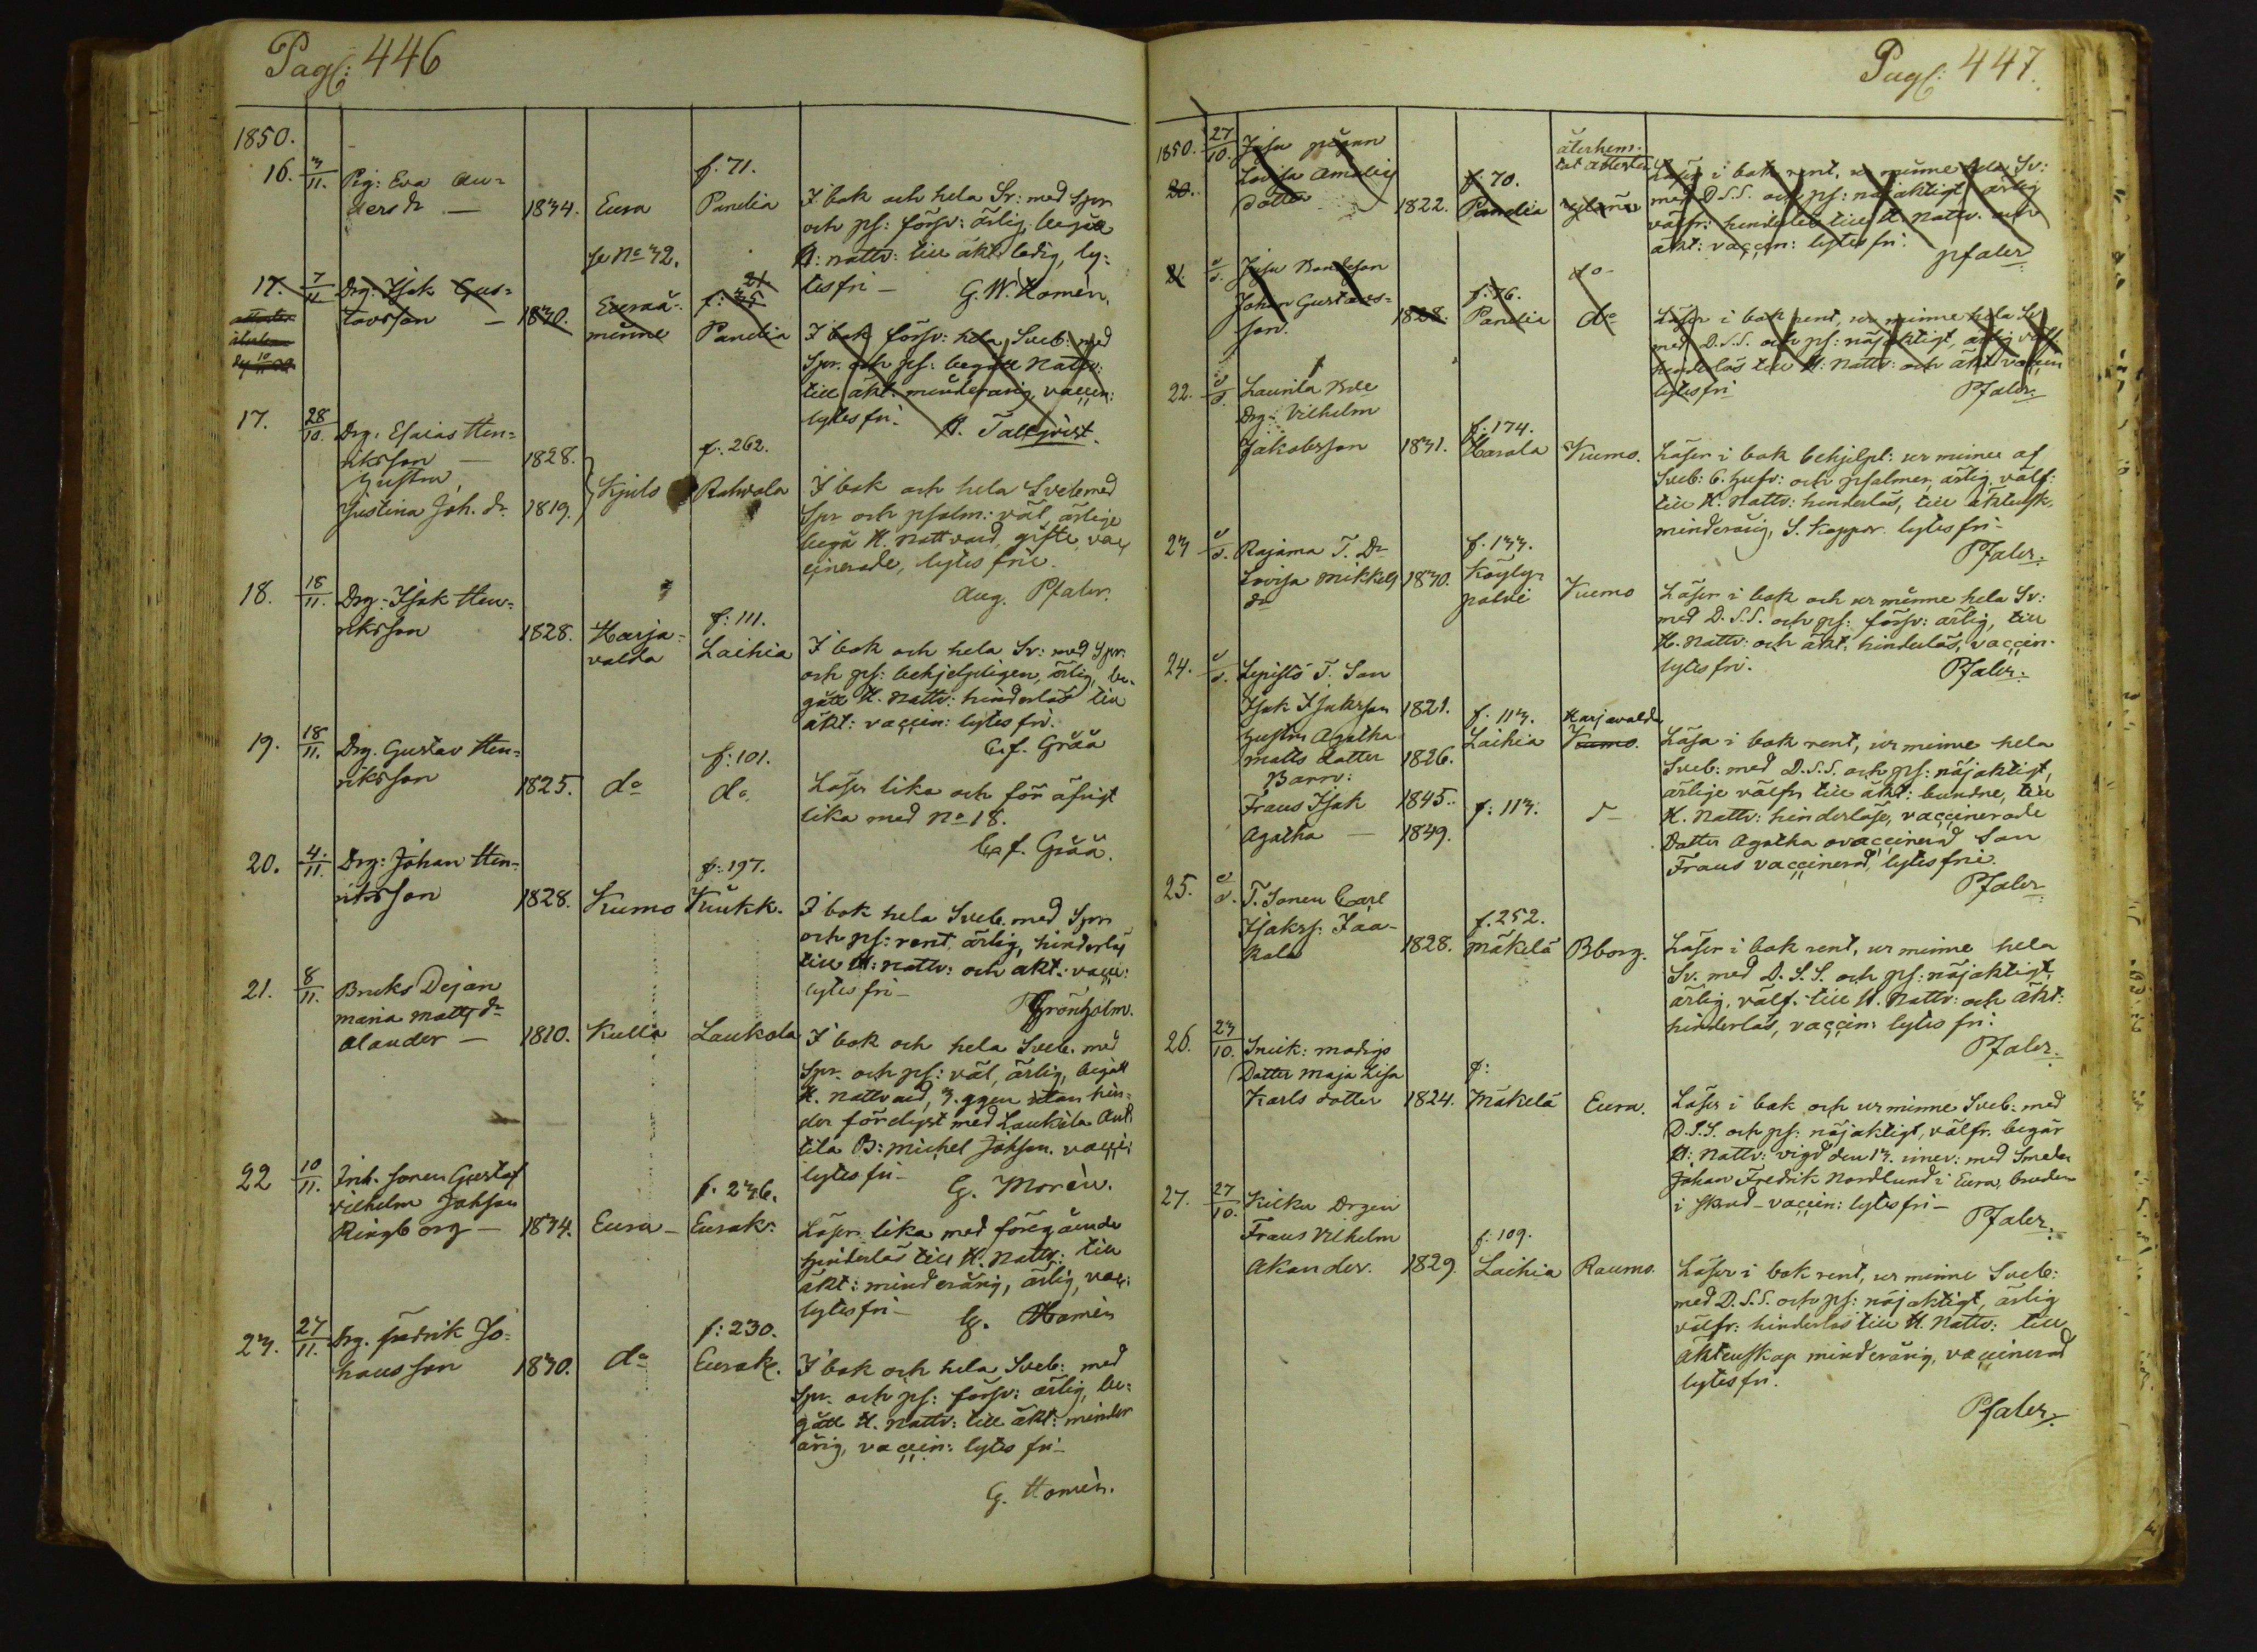 Pag: 446
1850.
16. 3/11. Pig: Eva An=
ders dr — 1834. Eura f. 71. Panelia
I bok och hela Sv: med Spr
och ps: försv: ärlig, begått
H: nattv: till äkt: ledig, ly=
tes fri —
G. W. Homén.
se No 32.
17. 7/11 Drg. Isak Gus=
tavsson — 1830. Euraå=
minne f: 35 21 Panelia
attesten
återlem
I bok försv: hela Sveb: med
Spr. och ps: begått Nattv:
till äkt: minderårig, vaccin:
lytes fri.
A. Tallqvist.
17. 28/10. Drg. Esaias Hen=
riksson — 1828.
hustru,
Justina Joh. dr. 1819.
Kjulo f. 262. Rahvola
I bok och hela Sveb med
Spr och psalm: väl ärlige
begå H. Nattvard, gifte, vac
cinerade, lytes frie.
Aug. Pfaler.
18. 18/11. Drg. Isak Hen=
riksson 1828. Harja=
valda f: 111. Laihia
I bok och hela Sv: med Spr:
och ps: behjelpligen, ärlig, be=
gått H. Nattv: hinderlös till
äkt: vaccin: lytes fri.
C. f. Grää
19. 18/11. Drg. Gustav Hen=
riksson 1825. do f: 101. do
Läser lika och för öfrigt
lika med No 18.
C. f. Grää.
20. 4./11. Drg: Johan Hen=
riksson 1828. Kumo f: 197. Kuukk.
I bok hela Sveb. med Spr
och ps: rent, ärlig, hinderlös
till H: nattv: och äkt: vacc:
lytes fri —
Grönholm.
21. 8/11. Bruks Dejan
Maria Matts dr
Alander — 1810. Kulla Laukola
I bok och hela Sveb. med
Spr. och ps: väl, ärlig, begått
H. Nattvard, 3. ggen utan hin=
der för lyst med Laukola Ant
tila B: Michel Johsson. vacci:
lytes fri —
G. Morén.
22 10/11. Inh. sonen Gustaf
Vilhelm Johsson
Ringborg — 1834. Eura — f. 236. Eurak:
Läser lika med föregående
hinderlös till H. Nattv: till
äkt: minderårig, ärlig, vac:
lytes fri —
G. Homén
23. 27/11. Drg. Fredrik Jo=
hansson 1830. do f: 230. Eurak.
I bok och hela Sveb: med
Spr. och ps: försv: ärlig, be=
gått H. Nattv: till äkt: minder
årig, vaccin: lytes fri —
G. Homén.
Pag: 447.
1850. 27/10. Jusu pigan
20. Lovisa Amalia
dotter 1822. f. 70. Panelia
återhem=
tat attesten
Läser i bok rent, ur minne hela Sv:
med D.S.S. och ps: nöjaktigt ärlig
välfr: hinderlös till H. Nattv. och
äkt: vaccin: lytes fri.
Pfaler
21. Jusu Bondeson
Johan Gustavs=
son. 1828. f. 76. Panelia do do
Läser i bok rent, ur minne hela Sv
med D.S.S. och ps: nöjaktigt, ärlig välf:
hinderlös till H: Nattv: och äkt: vaccin
lytes fri
Pfaler.
22. Laurila Bde
Drg: Vilhelm
Jakobsson 1831. f. 174. Harola Kumo.
Läser i bok behjelpl: ur minne af
Sveb: 6. hufv: och psalmer, ärlig, välf:
till H. Nattv: hinderlös, till äktensk.
minderårig, S. Koppor. lytes fri —
Pfaler.
23 Rajama T. Dr
Lovisa Mikkels
dr 1830. f. 133. Köyly=
polvi Kumo
Läser i bok och ur minne hela Sv:
med D.S.S. och ps: försv: ärlig, till
H. Nattv: och äkt: hinderlös, vaccin.
lytes fri.
Pfaler.
24. Lepistö T. Son
Isak Isaksson 1821. f. 113. Harjavalda
hustru Agatha Laihia Kumo.
Matts dotter 1826.
Barn:
Frans Isak 1845. f: 113.
Agatha — 1849.
Läsa i bok rent, ur minne hela
Sveb: med D.S.S. och ps: nöjaktigt,
ärlige välfr till äkt: bundne, till
H. Nattv: hinderlöse, vaccinerade
Dotter Agatha ovaccinerad Son
Frans vaccinerad, lytes frie.
Pfaler
25. T. Sonen Carl
Isakss: Jaa=
kola 1828. f. 252. Mäkelä Bborg.
Läser i bok rent, ur minne hela
Sv. med D.S.S. och ps: nöjaktigt,
ärlig, välf. till H. Nattv: och äkt:
hinderlös, vaccin: lytes fri.
Pfaler.
26. 23/10. Snick: Madigs
Dotter Maja Lisa
Karls dotter 1824. f: Mäkelä Eura.
Läser i bok och ur minne Sveb: med
D.S.S. och ps: nöjaktigt, välfr. begår
H: Nattv: vigd den 13. innev: med Smeden
Johan Fredrik Nordlund i Eura, bruden
i skrud — vaccin: lytes fri —
Pfaler.
27. 27/10. Kuiku Drgen
Frans Vilhelm
Akander. 1829 f. 109. Laihia Raumo.
Läser i bok rent, ur minne Sveb:
med D.S.S. och ps: nöjaktigt, ärlig
välfr: hinderlös till H. Nattv: till
äktenskap minderårig, vaccinerad
lytes fri.
Pfaler.